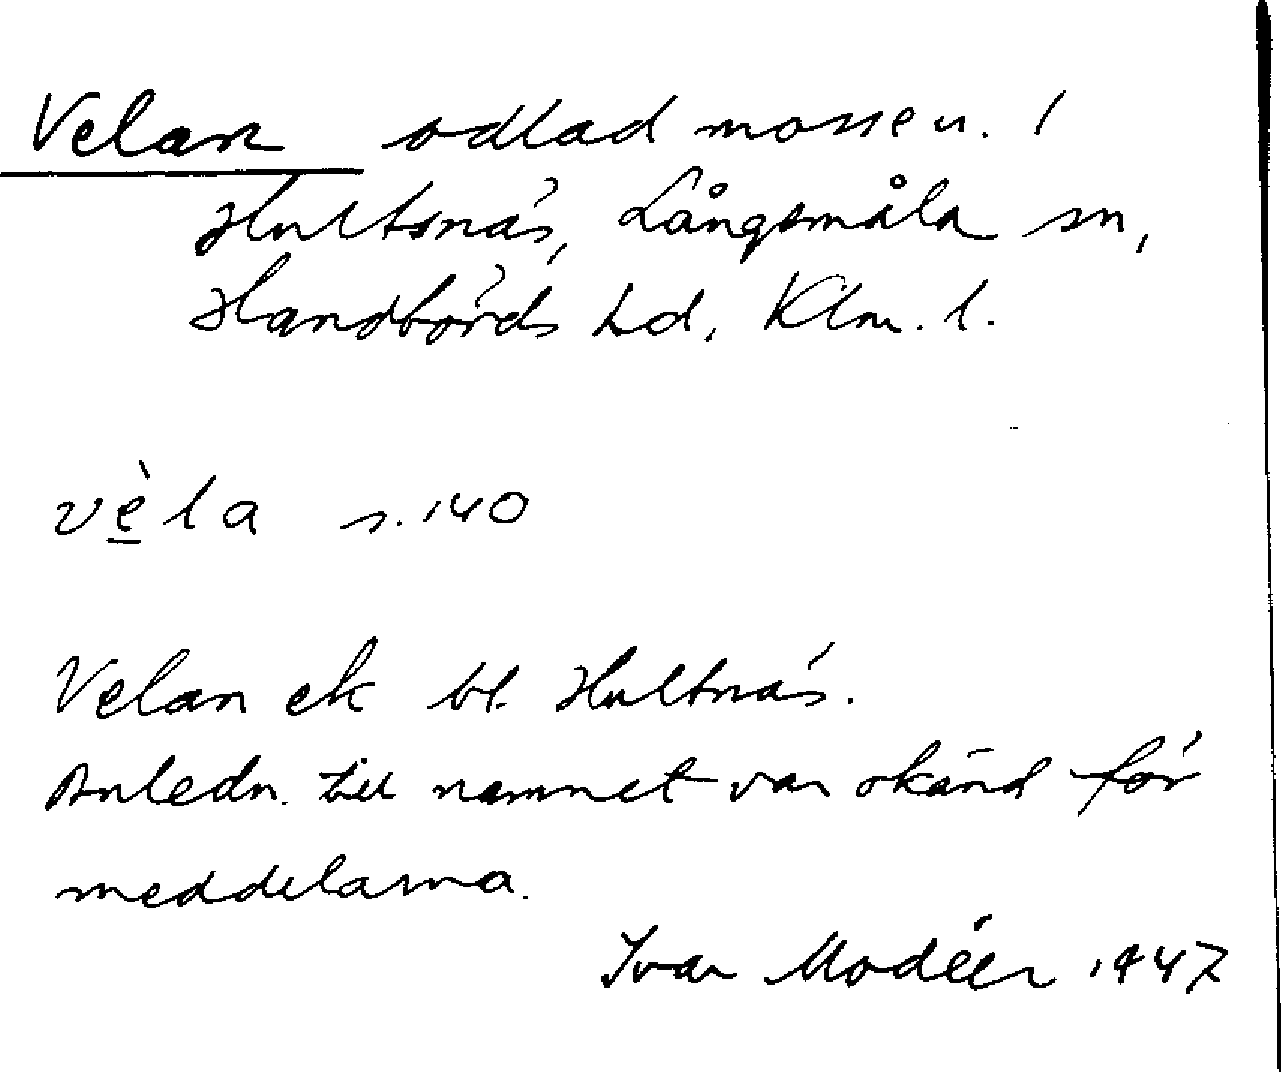 Velan odlad mosse u. /
Hultsnäs, Långemåla sn,
Handbörds hd, Klm. l.
vèla s. 140
Velan ek bl. Hultnäs.
Anledn. till namnet var okänd för
meddelarna.
Ivar Modéer 1947